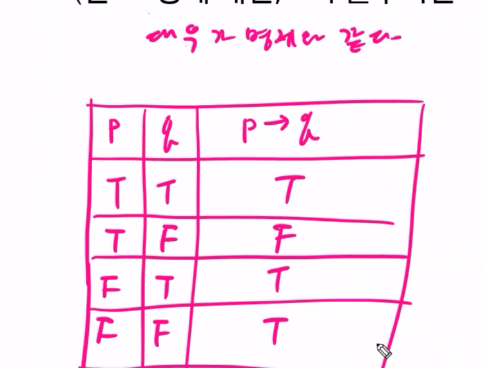 대우가 명제와 같다
P q P→q
T T T
T F F
F T T
F F T